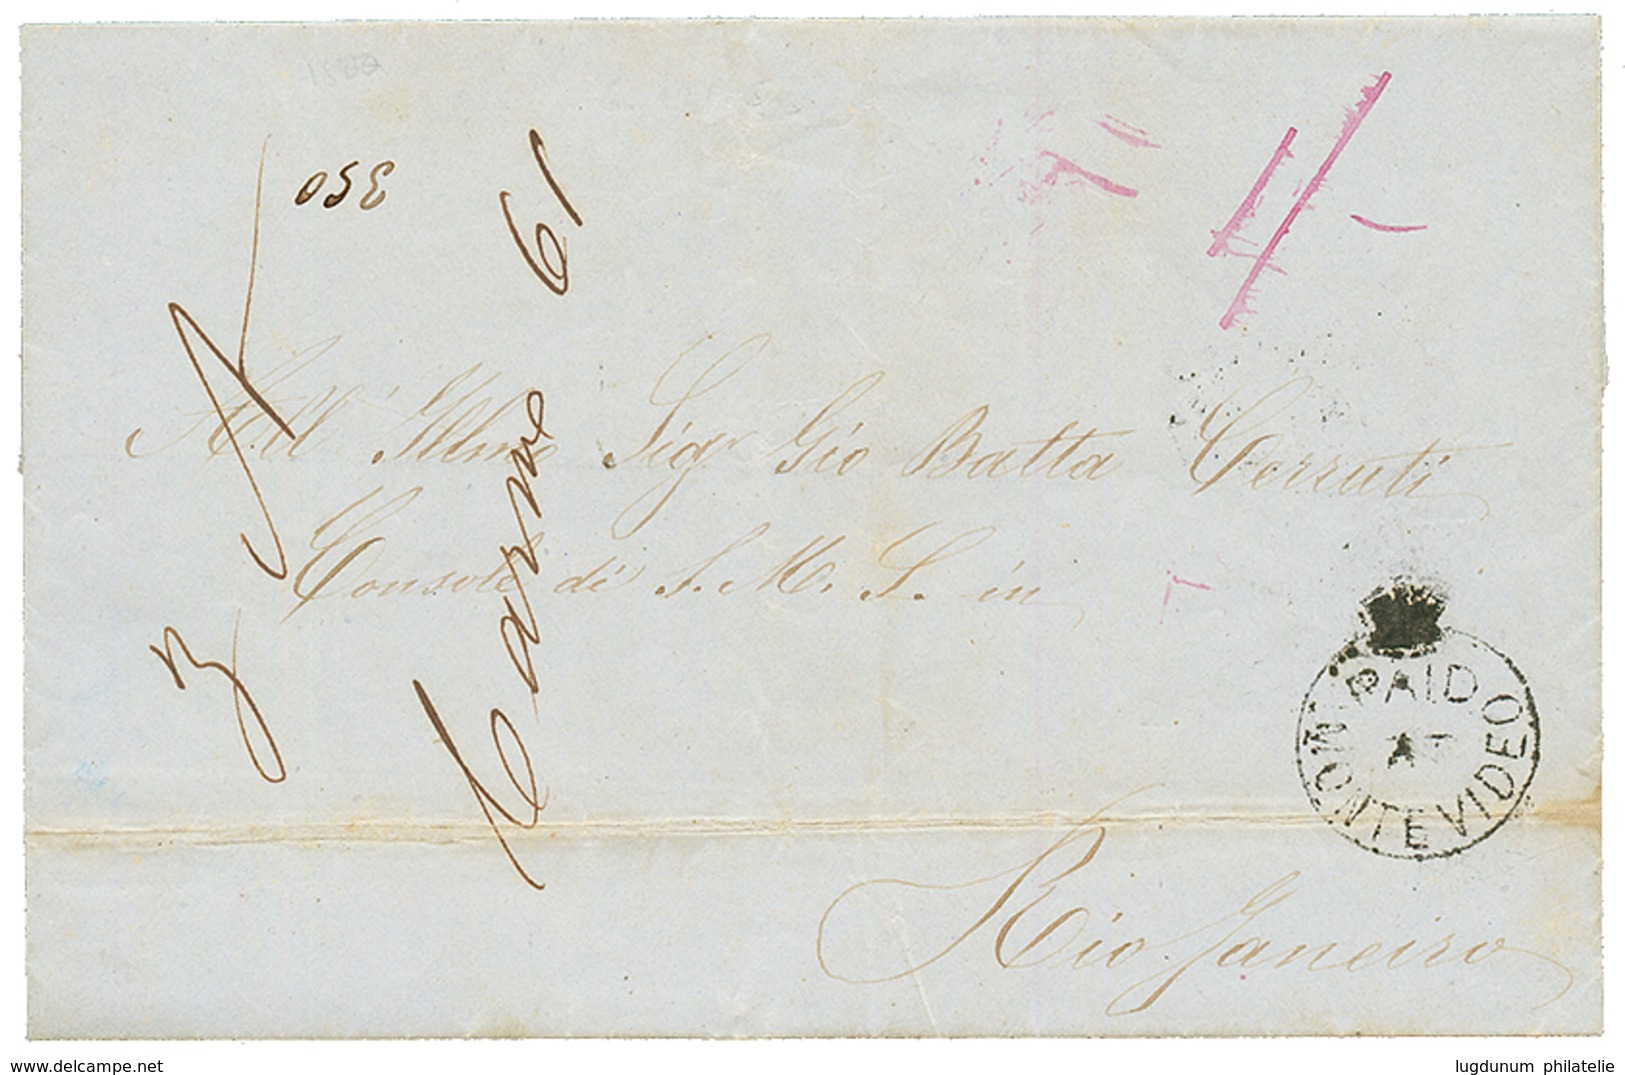 350
1/-
Carme 61
All' Illmo Sigr Gio Batta Cerruti
Console di S. M. S. in
PAID
AT
MONTEVIDEO
Rio Janeiro
www.delcampe.net
lugdunum philatelie